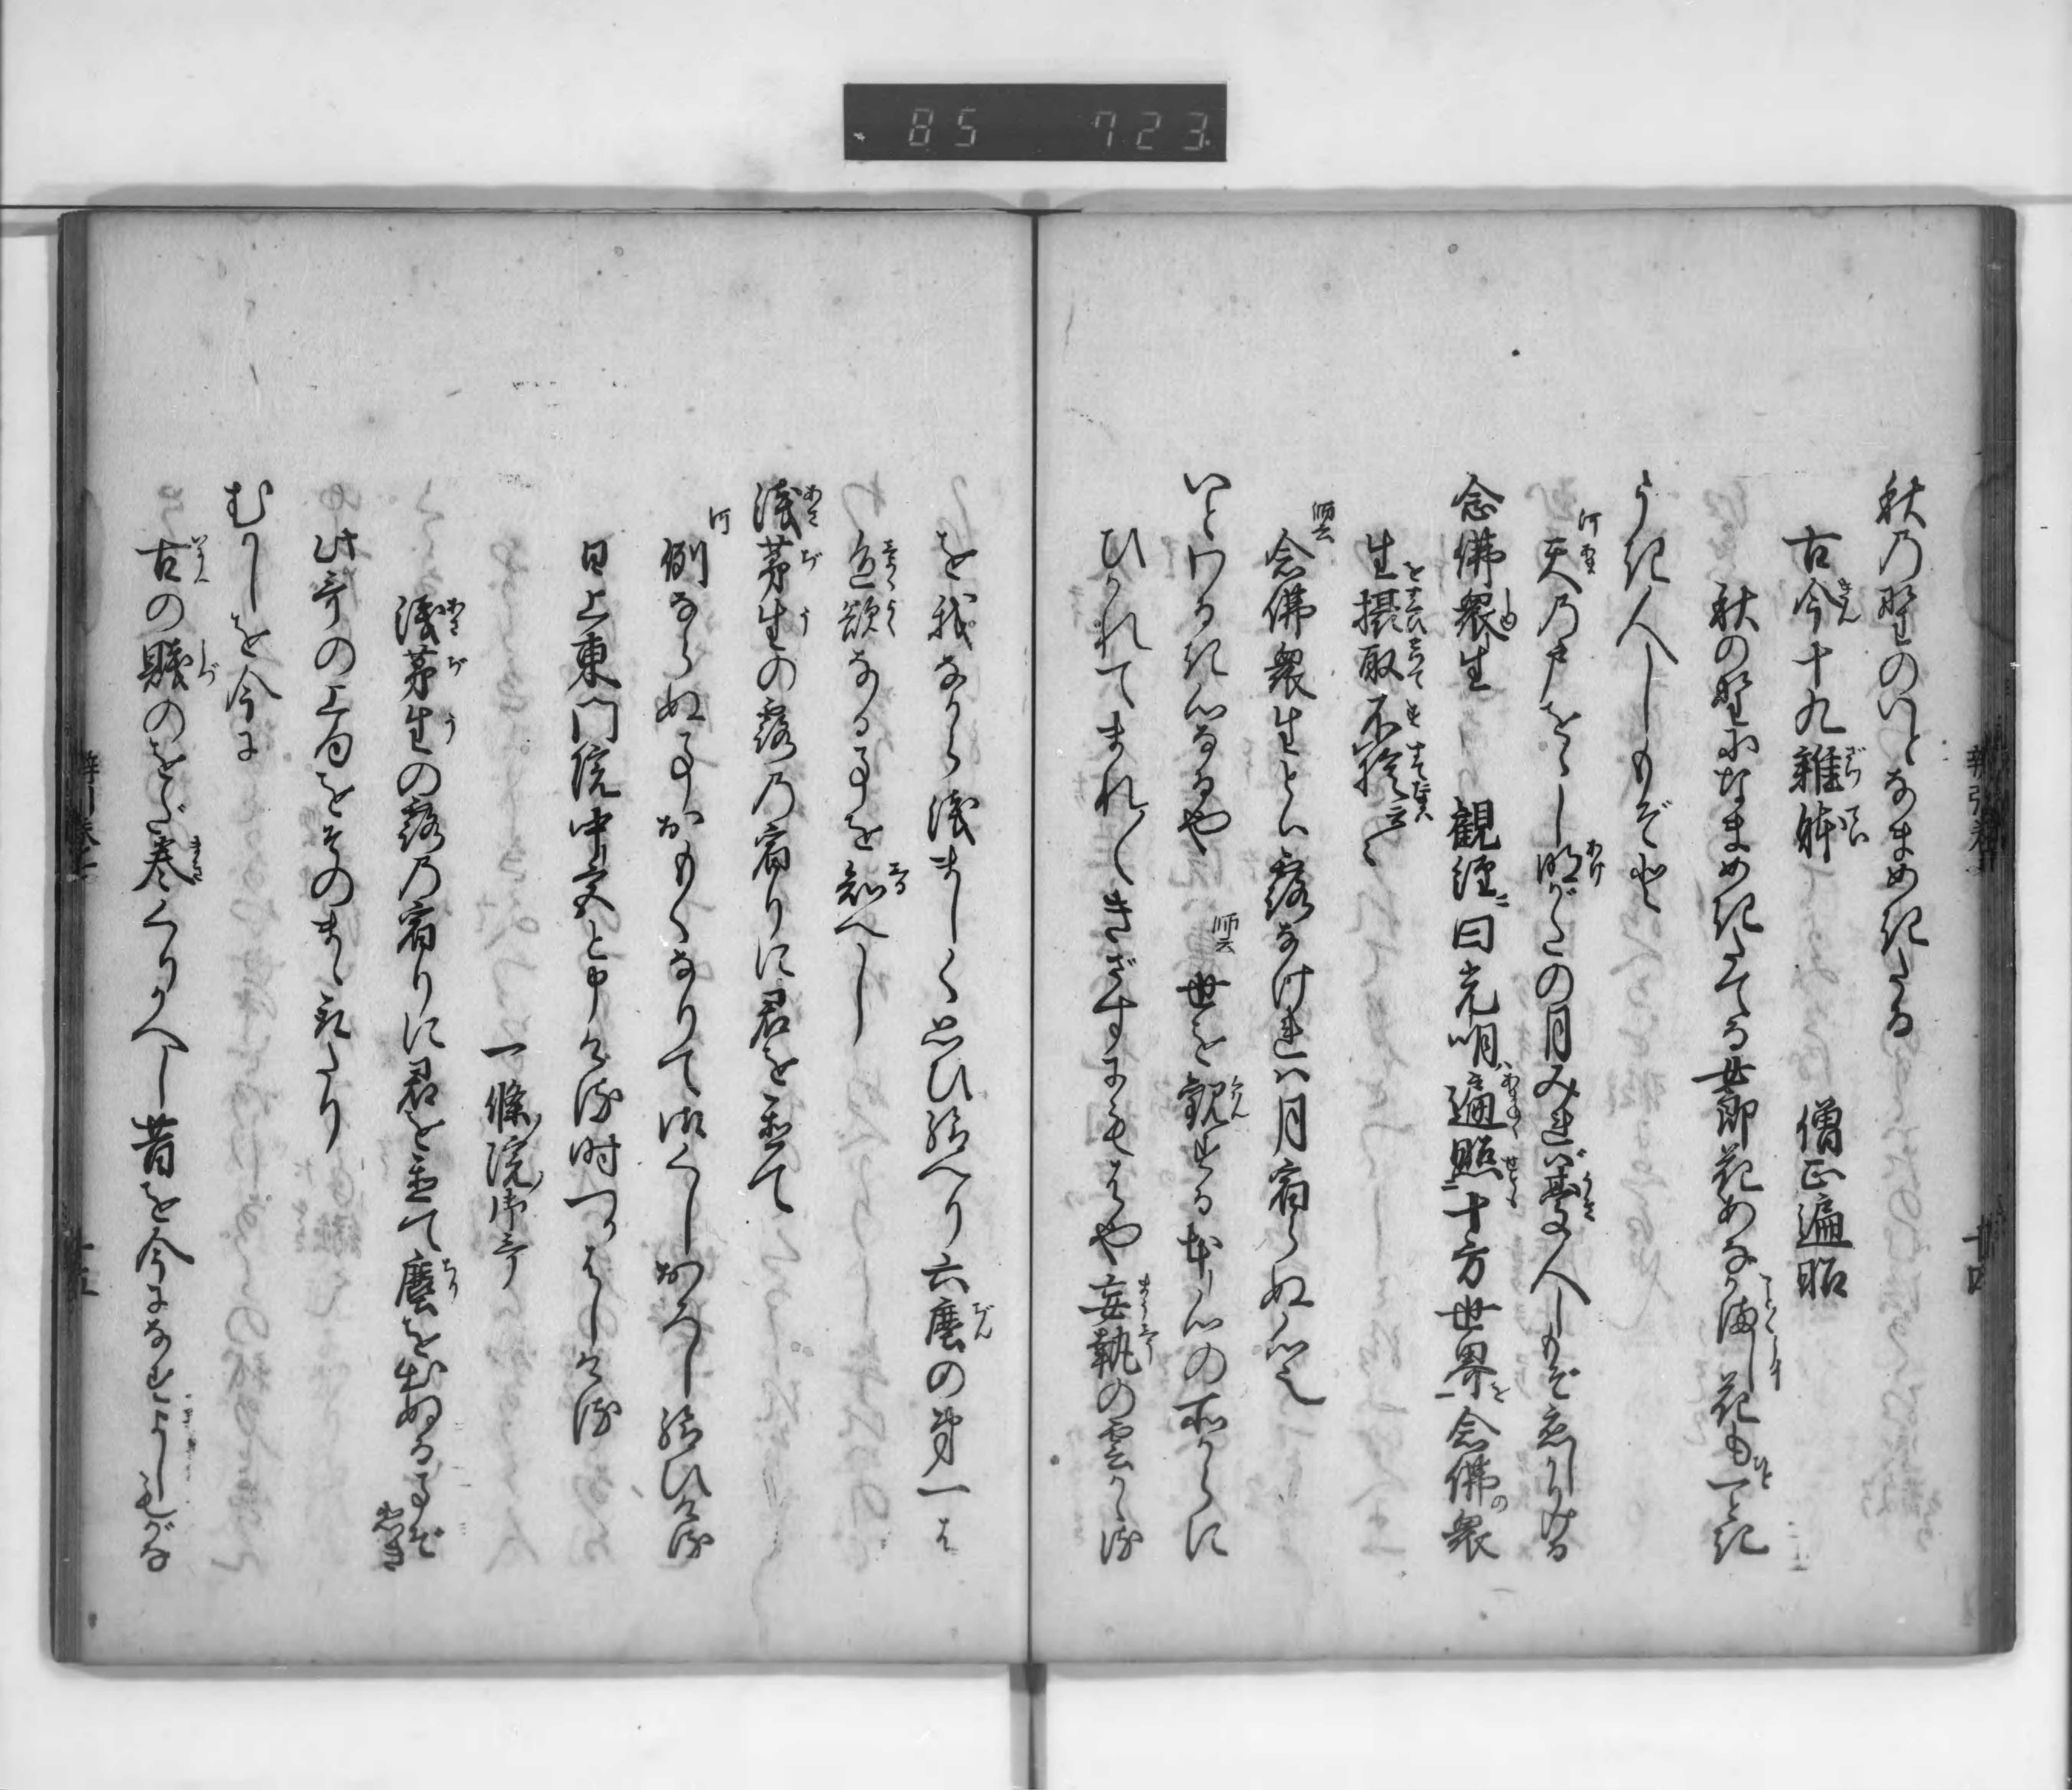 85 723
秋乃野のいとなまめきたる
古今十九雑躰 僧正遍昭
秋の野になまめきたてる女郎花あなかしかまし花も一とき
うき人しもぞ恋
河 天乃戸をゝし明がたの月みれば憂人しもぞ恋しかりける
念佛衆生 観経ニ曰光明ハ遍照ニ十方世界ヲ念佛の衆
生摂取不捨云〻
師云 念佛衆生といふ露なけれは月宿らぬ心也
いとわるき心なるや 師云 世を観ずる本心の所からに
ひかれてまれ〳〵きざすまもはや妄執の雲かゝる
を我なから浅ましく思ひ給へり六塵の第一は
色欲なる事を知へし
浅茅生の露乃宿りに君を置て
河 例ならぬ事おもくなりて御くしおろし給ひける
日上東門院中宮と申ける時つかはしける
一條院御哥
浅茅生の露乃宿りに君を置て塵を出ぬる事ぞ悲しき
此哥の上句をそのまゝ取たり
むかしを今に
古の賤のをだ巻くりかへし昔を今になすよしもがな